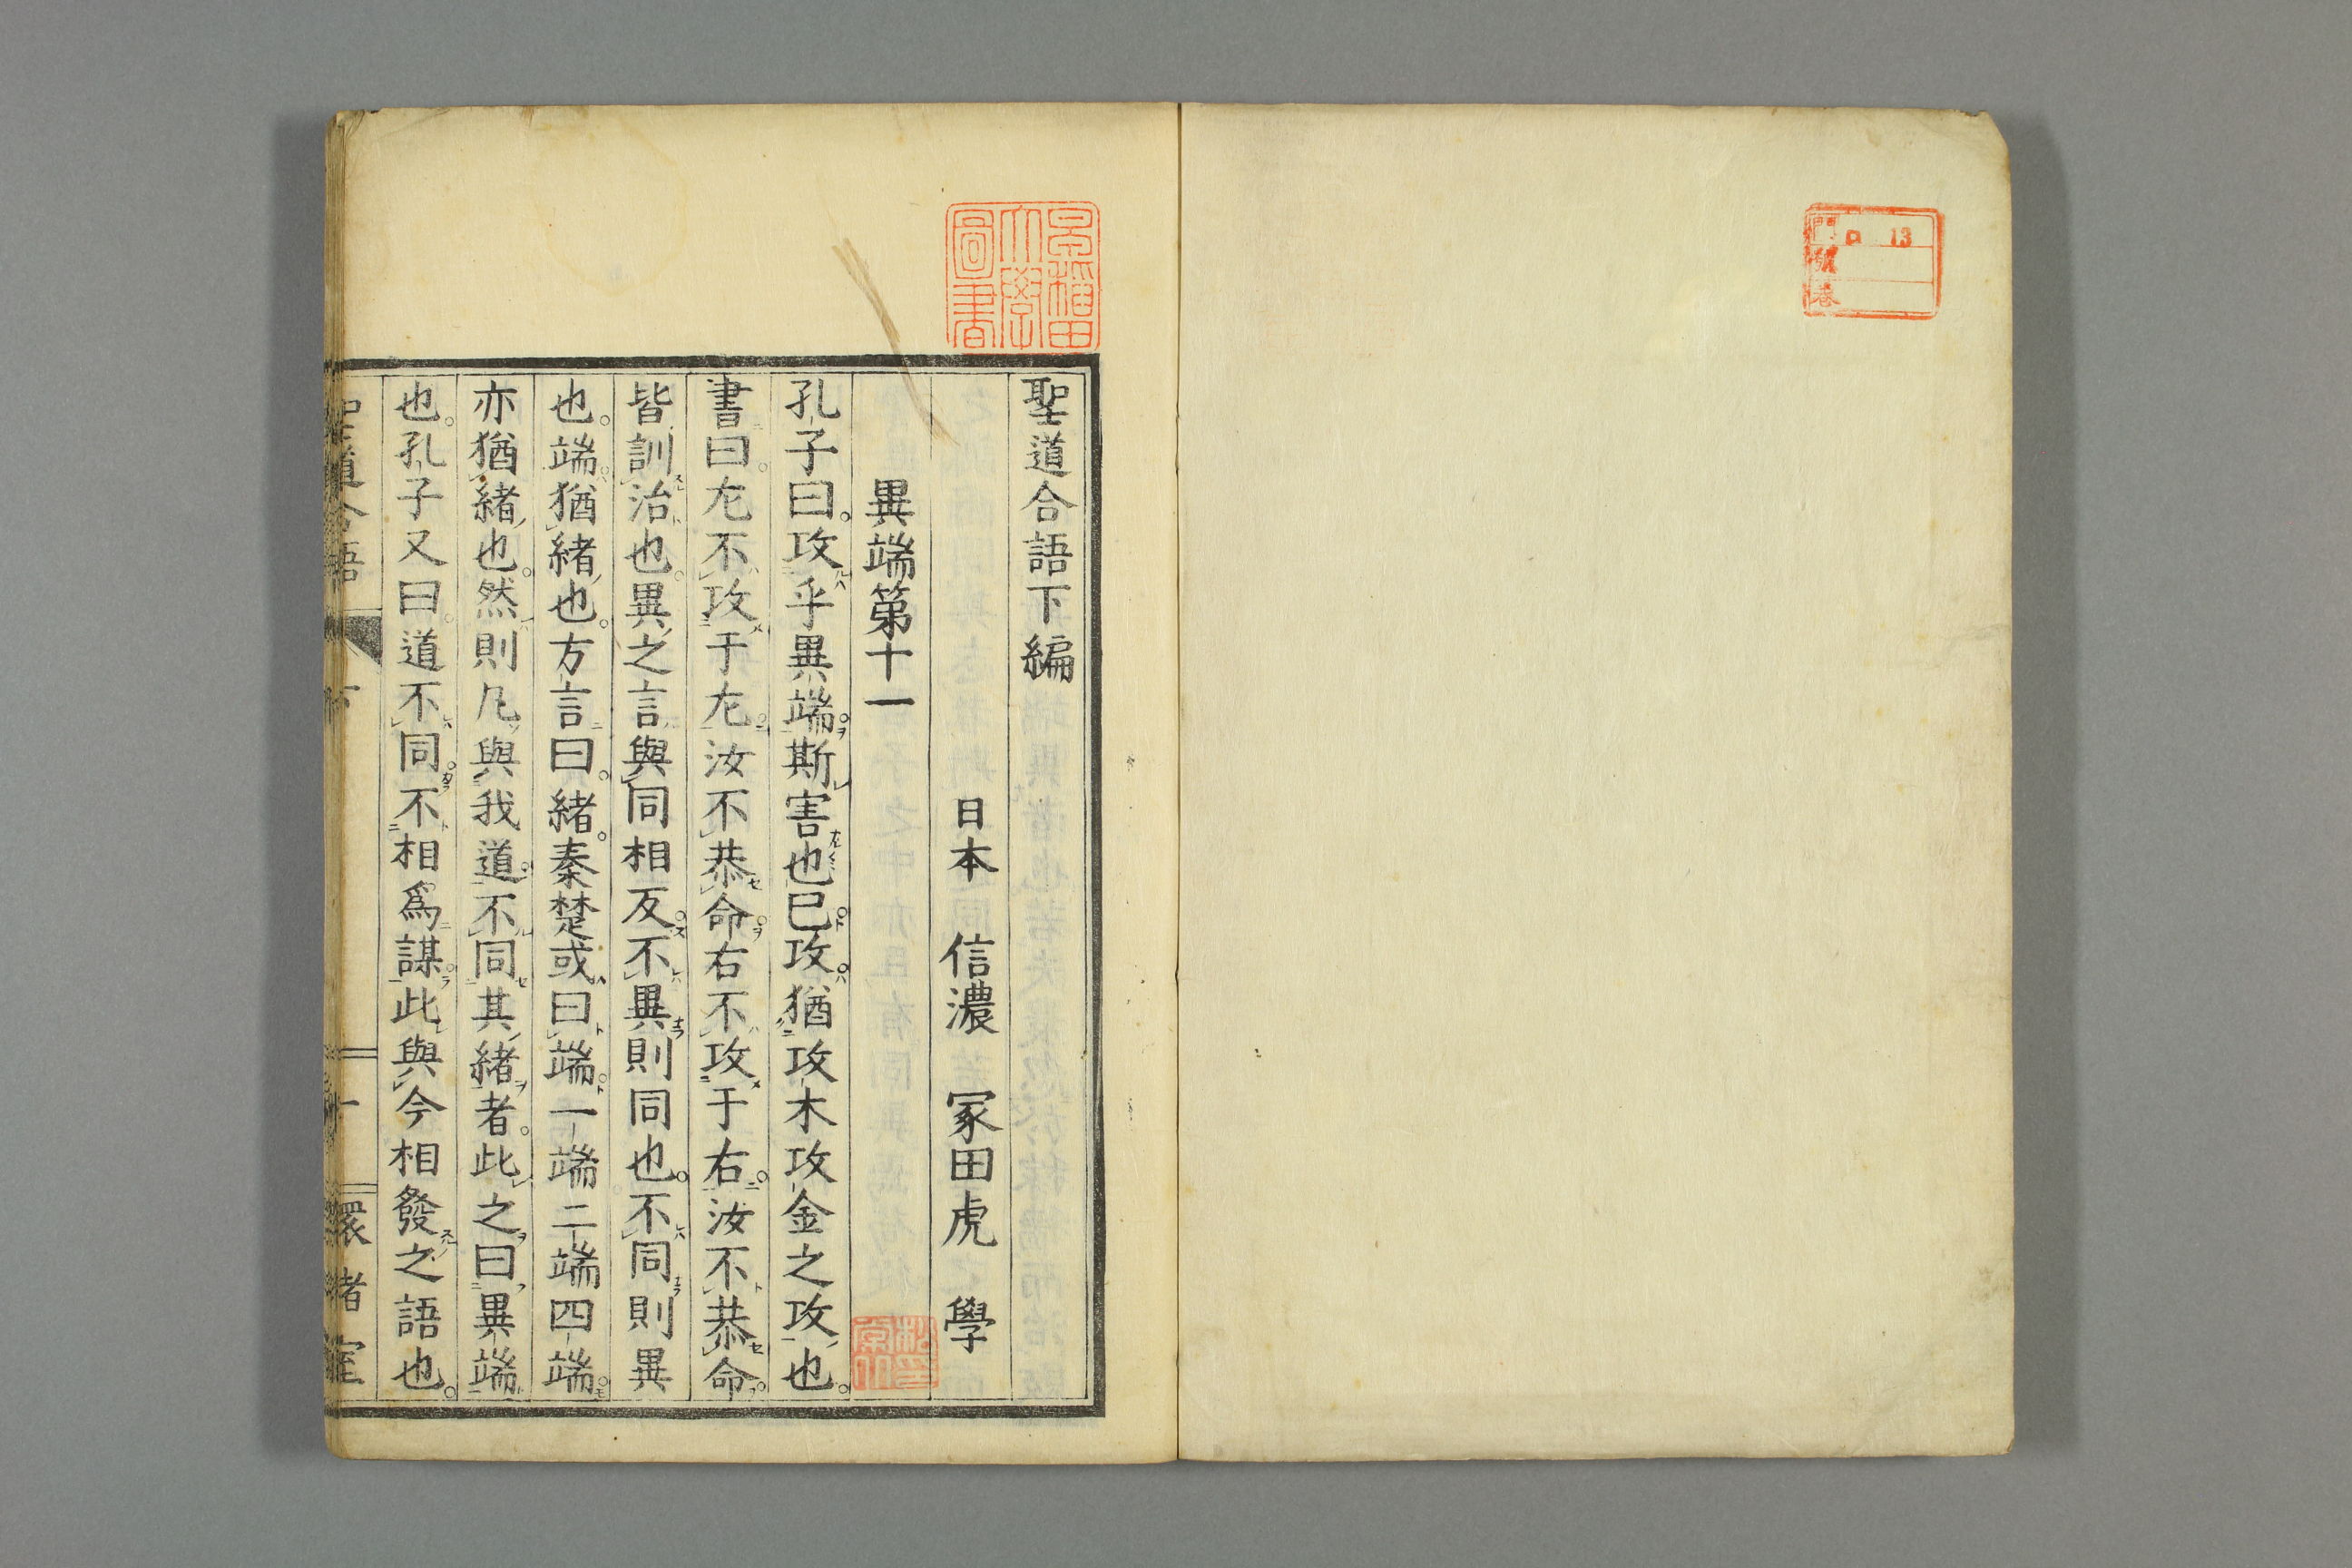 門 ロ 13
號
巻
早稲田大學圖書
聖道合語下編
日本 信濃 冢田虎 學
異端第十一
孔子曰攻乎異端斯害也已攻猶攻木攻金之攻也
書曰左不攻于左汝不恭命右不攻于右汝不恭命
皆訓治也異之言與同相反不異則同也不同則異
也端猶緒也方言曰緒秦楚或曰端一端二端四端
亦猶緒也然則凡與我道不同其緒者此之曰異端
也孔子又曰道不同不相爲謀此與今相發之語也
聖道合語 下 一 環堵室